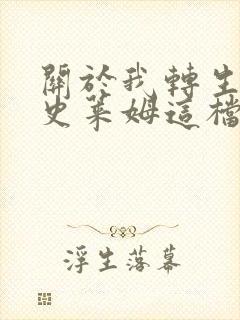 關於我轉生
史萊姆這檔
浮生落幕